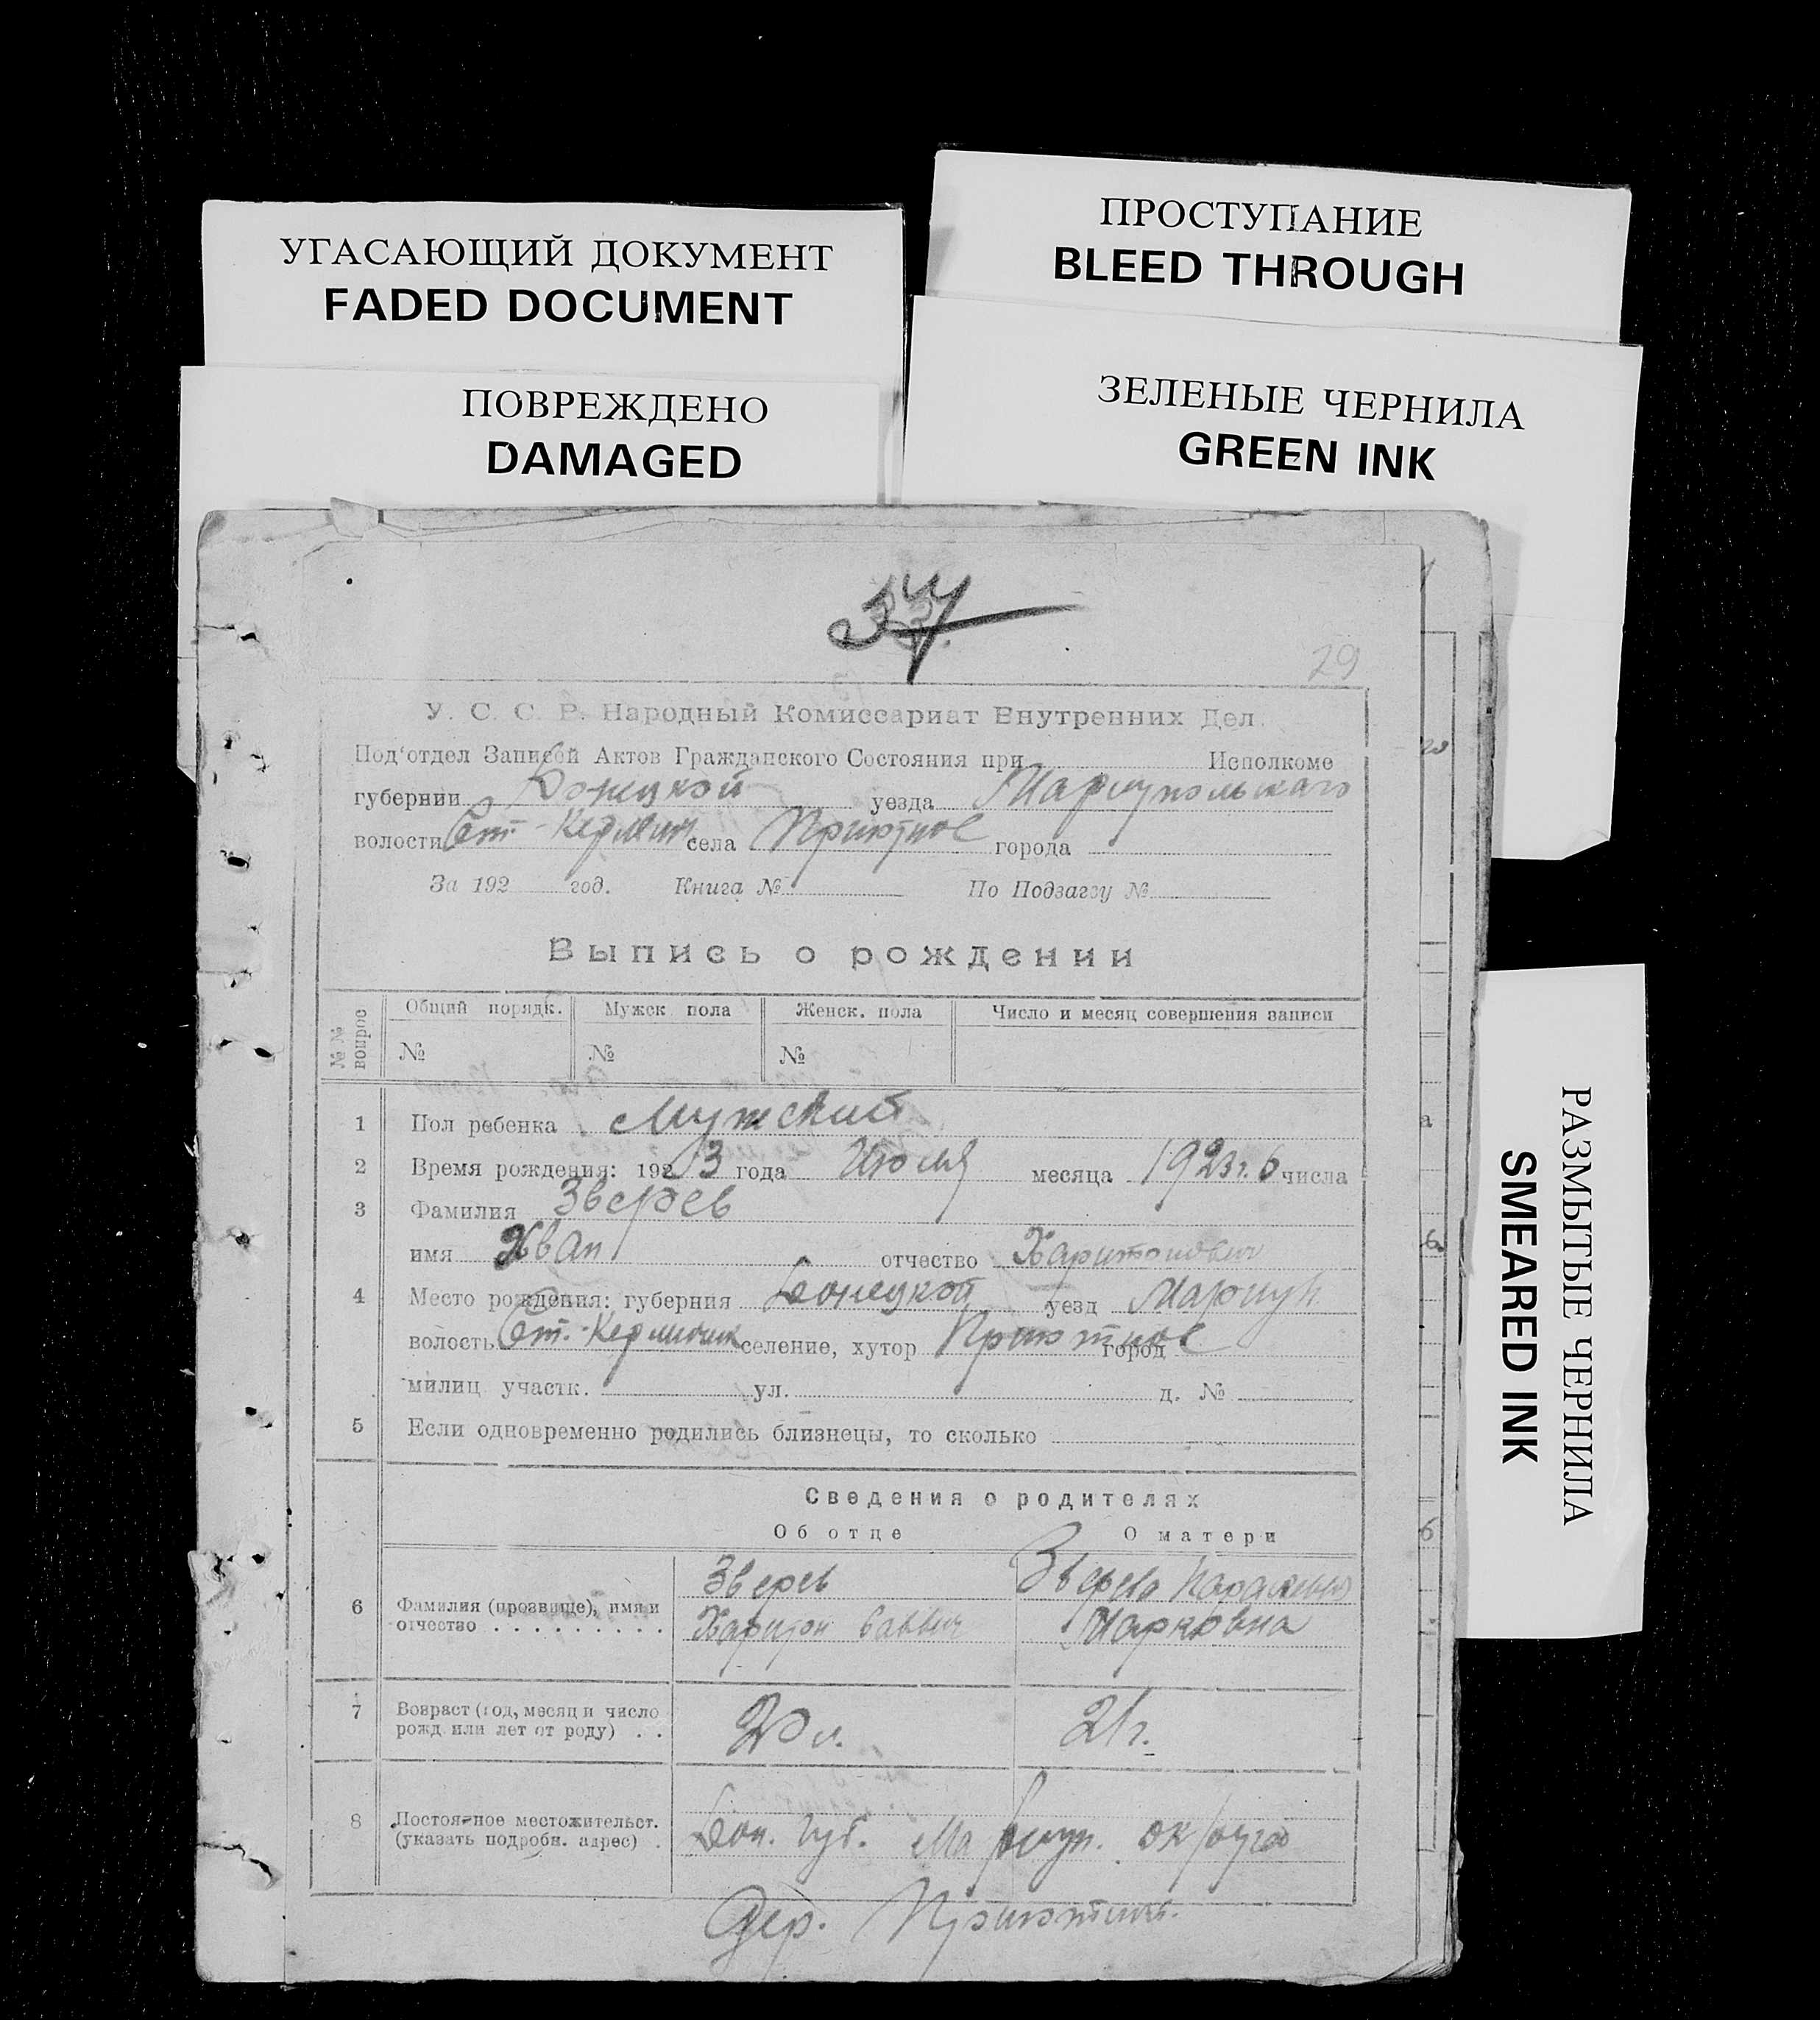 УГАСАЮЩИЙ ДОКУМЕНТ
FADED DOCUMENT
ПРОСТУПАНИЕ
BLEED THROUGH
ПОВРЕЖДЕНО
DAMAGED
ЗЕЛЕНЫЕ ЧЕРНИЛА
GREEN INK
29
У. С. С. Р. Народный Комиссариат Внутренних Дел.
Под'отдел Записей Актов Гражданского Состояния при Исполкоме
губернии Донецкой уезда Мариупольскаго
волости Ст.-Кермен села Приютное города
За 192 год. Книга № По Подзагсу №
Выпись о рождении
№№ вопрос
Общий порядк. Мужск пола Женск. пола Число и месяц совершения записи
№ № №
1 Пол ребенка Мужской
2 Время рождения: 1923 года Июля месяца 1923г. 6 числа
3 Фамилия Зверев
имя Иван отчество Харитонович
4 Место рождения: губерния Донецкой уезд Мариуп
волость Ст.-Керменчик селение, хутор Приютное город
милиц участк. ул. д. №
5 Если одновременно родились близнецы, то сколько
Сведения о родителях
Об отце О матери
6 Фамилия (прозвище), имя и отчество
Зверев
Харитон Саввич
Зверева
Марковна
7 Возраст (год, месяц и число рожд или лет от роду)
20 л. 21г.
8 Постоянное местожительст. (указать подробн. адрес)
Дон. Губ. Мариуп. округа
Дер.
РАЗМЫТЫЕ ЧЕРНИЛА
SMEARED INK